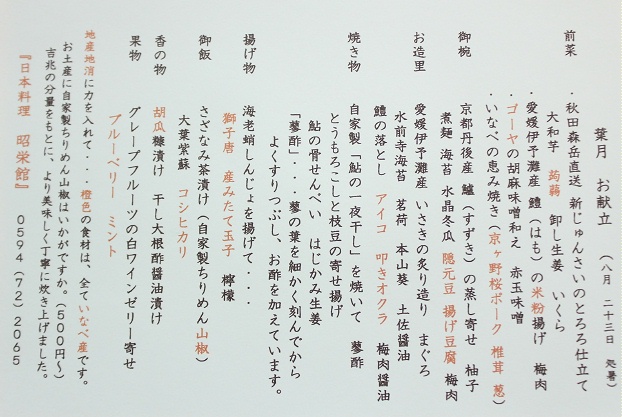 葉月　お献立　（八月　二十三日　処暑）
前菜　・秋田森岳直送　新じゅんさいのとろろ仕立て
大和芋　蒟蒻　卸し生姜　いくら
・愛媛伊予灘産　鱧（はも）の米粉揚げ　梅肉
・ゴーヤの胡麻味噌和え　赤玉味噌
・いなべの恵み焼き（京ヶ野桜ポーク　椎茸　葱）
御椀　京都丹後産　鱸（すずき）の蒸し寄せ　柚子
煮麺　海苔　水晶冬瓜　隠元豆　揚げ豆腐　梅肉
お造里　愛媛伊予灘産　いさきの炙り造り　まぐろ
水前寺海苔　茗荷　本山葵　土佐醤油
鱧の落とし　アイコ　叩きオクラ　梅肉醤油
焼き物　自家製「鮎の一夜干し」を焼いて　蓼酢
とうもろこしと枝豆の寄せ揚げ
鮎の骨せんべい　はじかみ生姜
「蓼酢」・・・蓼の葉を細かく刻んでから
よくすりつぶし、お酢を加えています。
揚げ物　海老蛸しんじょを揚げて・・・
獅子唐　産みたて玉子　檸檬
御飯　さざなみ茶漬け（自家製ちりめん山椒）
大葉紫蘇　コシヒカリ
香の物　胡瓜糠漬け　干し大根酢醤油漬け
果物　グレープフルーツの白ワインゼリー寄せ
ブルーベリー　ミント
地産地消に力を入れて・・・橙色の食材は、全ていなべ産です。
お土産に自家製ちりめん山椒はいかがですか。（500円～）
吉兆の分量をもとに、より美味しく丁寧に炊き上げました。
『日本料理　昭栄館』　0594（72）2065